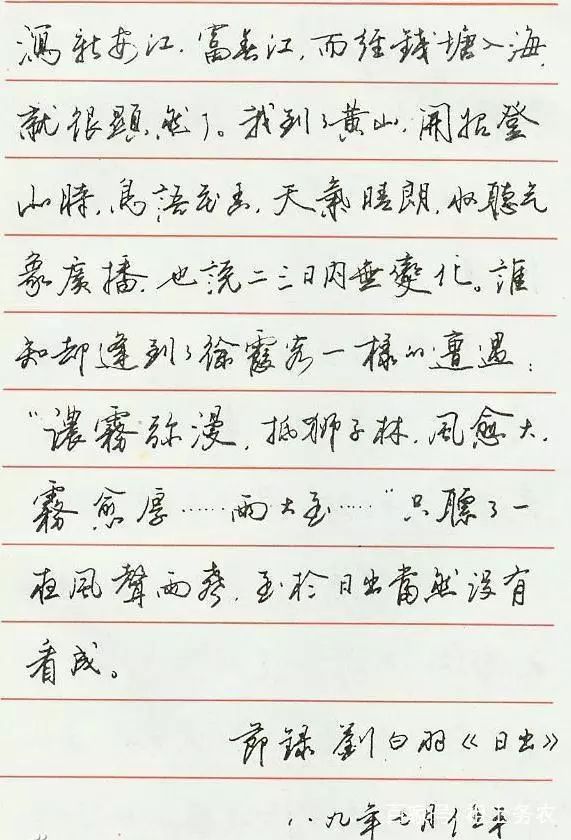 瀉新安江、富春江,而經錢塘入海,
就很顯然了。我到了黃山,開始登
山時,鳥語花香,天氣晴朗,收聽气
象廣播,也説二三日内無變化。誰
知却逢到了徐霞客一樣的遭遇:
“濃霧弥漫,抵狮子林,風愈大,
霧愈厚……雨大至……”只聽了一
夜風聲雨聲,至於日出當然没有
看成。
節録劉白羽《日出》
八九年七月任平
百家号
务农